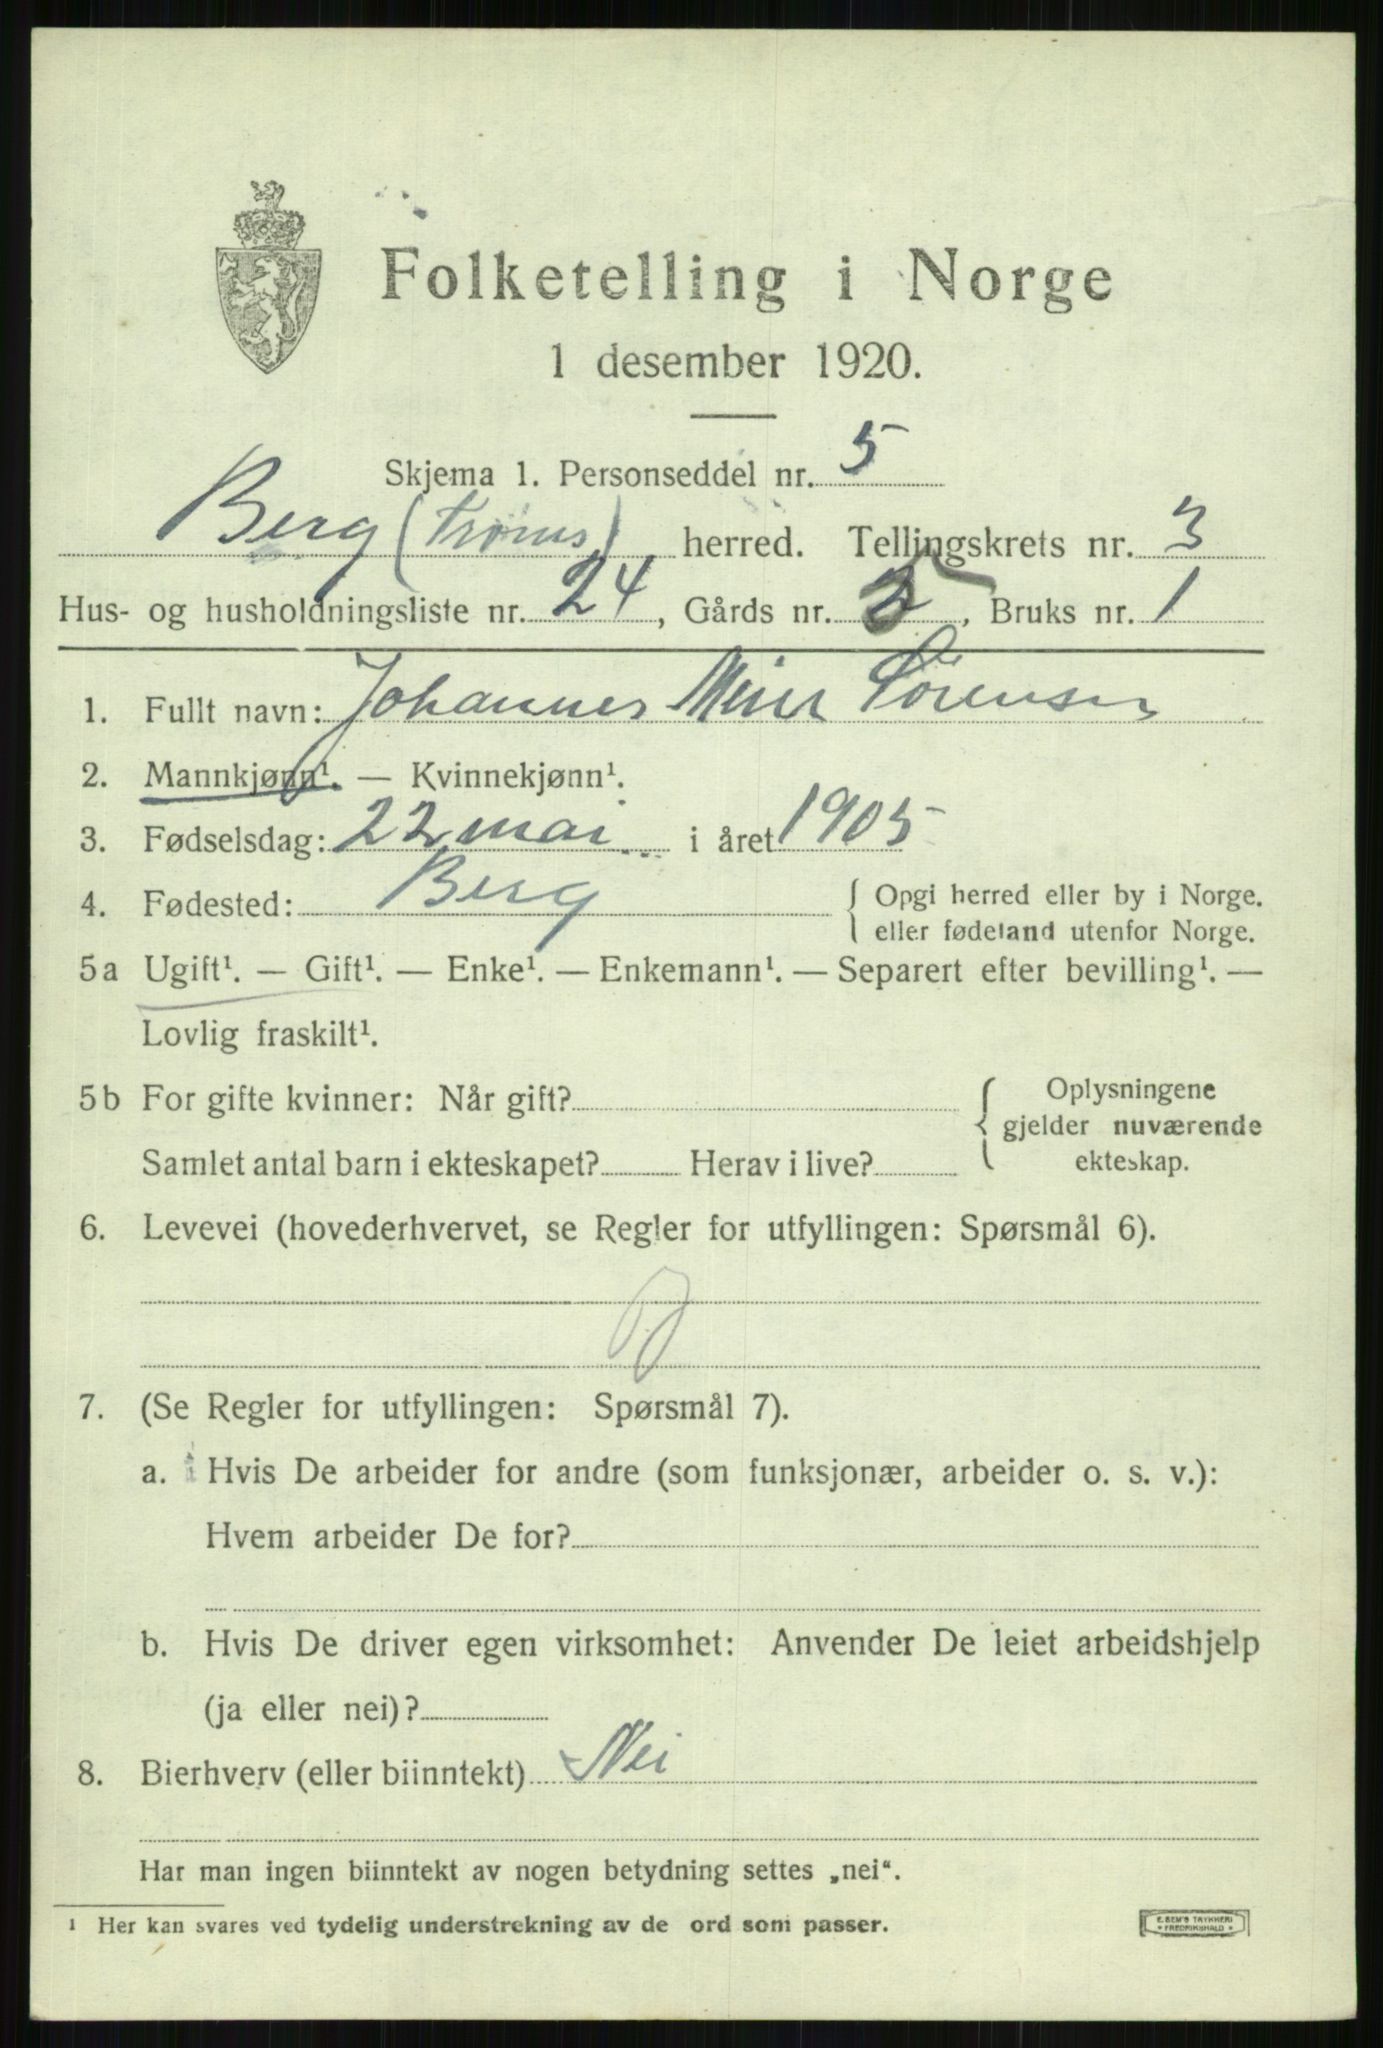 Folketelling i Norge
1 desember 1920.
Skjema 1. Personseddel nr. 5
Berg (Troms) herred. Tellingskrets nr. 3
Hus- og husholdningsliste nr. 24, Gårds nr. 5, Bruks nr. 1
1. Fullt navn: Johannes Meier Sørensen
2. Mannkjønn¹. — Kvinnekjønn¹.
3. Fødselsdag: 22 mai i året 1905
4. Fødested: Berg { Opgi herred eller by i Norge.
eller fødeland utenfor Norge.
5a Ugift¹. — Gift¹. — Enke¹. — Enkemann¹. — Separert efter bevilling¹. —
Lovlig fraskilt¹.
5b For gifte kvinner: Når gift? { Oplysningene
gjelder nuværende
Samlet antal barn i ekteskapet? Herav i live? ekteskap.
6. Levevei (hovederhvervet, se Regler for utfyllingen: Spørsmål 6).
7. (Se Regler for utfyllingen: Spørsmål 7).
a. Hvis De arbeider for andre (som funksjonær, arbeider o. s. v.):
Hvem arbeider De for?
b. Hvis De driver egen virksomhet: Anvender De leiet arbeidshjelp
(ja eller nei)?
8. Bierhverv (eller biinntekt) Nei
Har man ingen biinntekt av nogen betydning settes „nei“.
¹ Her kan svares ved tydelig understrekning av de ord som passer.
E. SEM'S TRYKKERI
* FREDRIKSHALD *